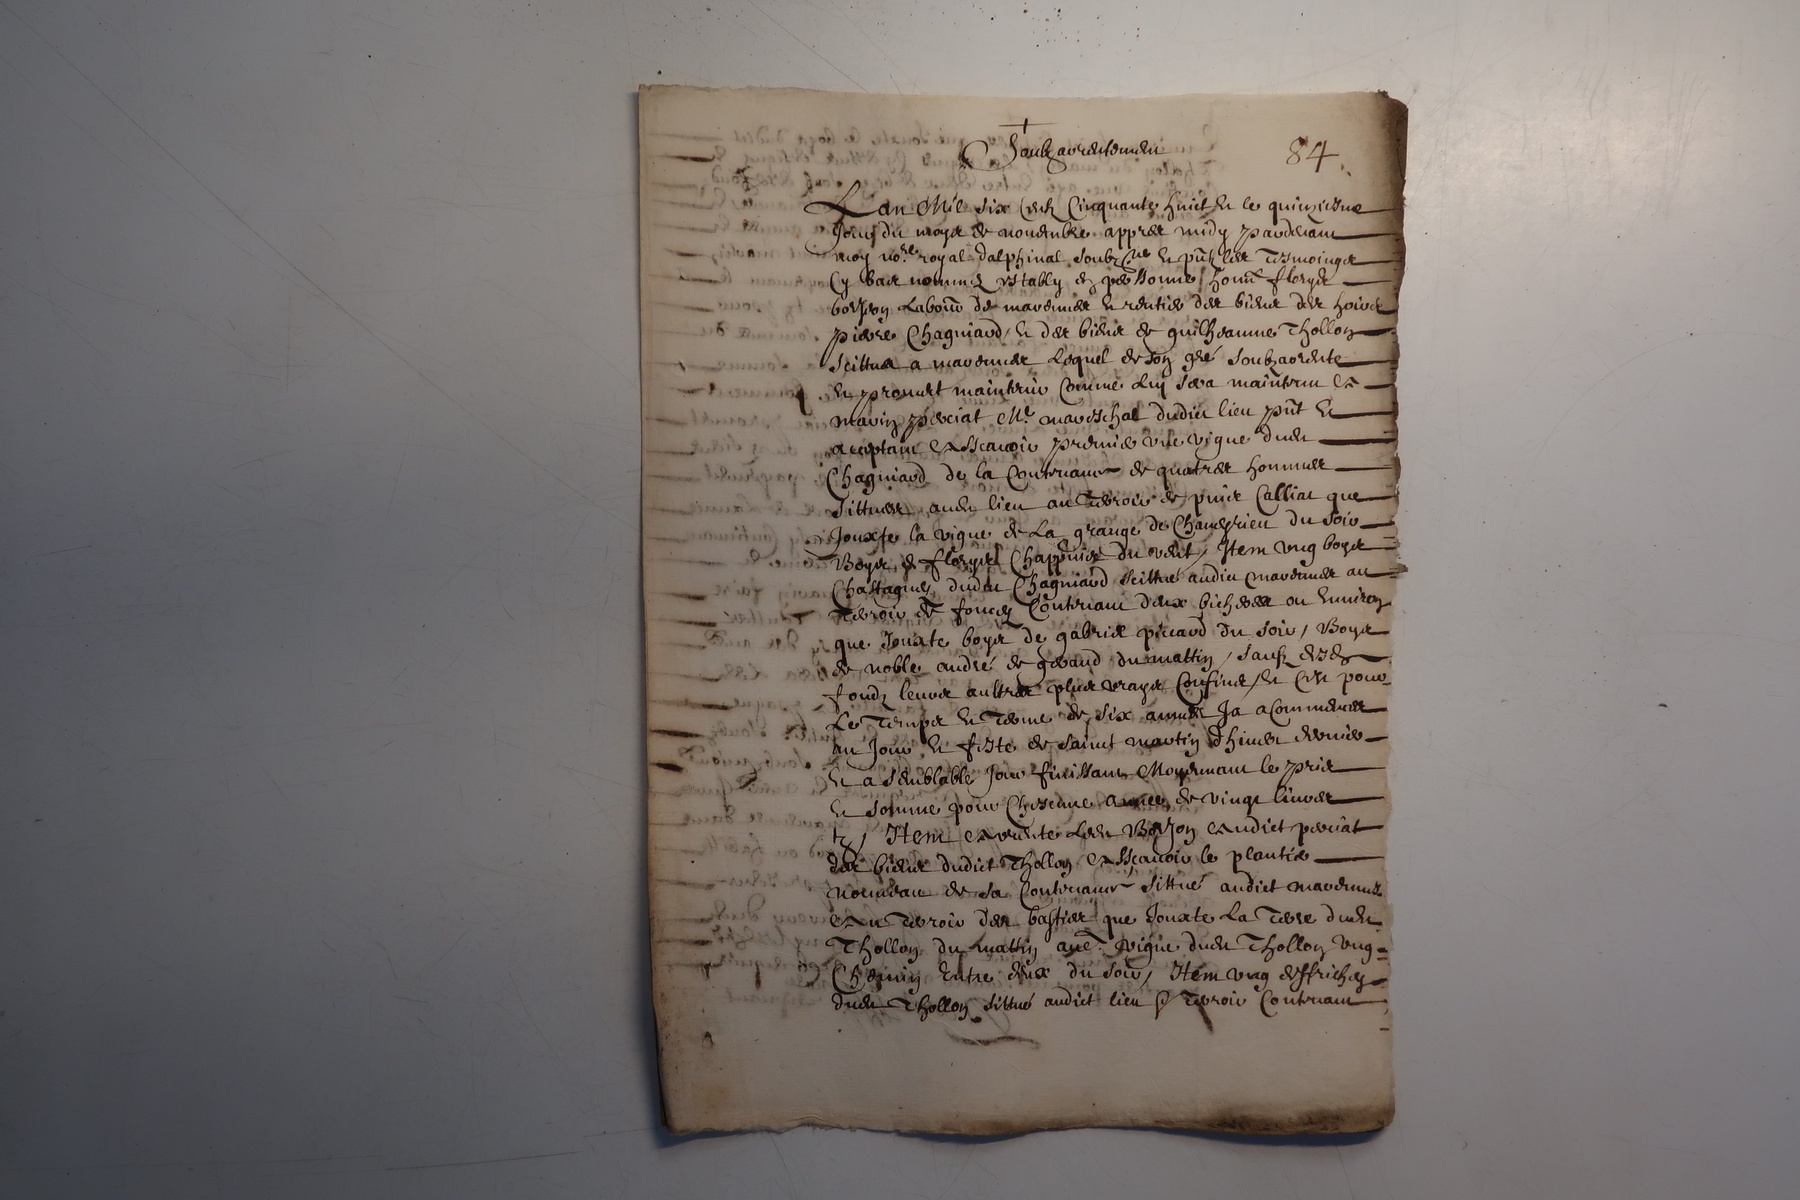 Soubzarrentement
84
L'an mil six centz cinquante huict et le quinziesme
jour du moys de novembre appres midy pardevant
moy no.re royal dalphinal soubz.ne et pntz les tesmoings
cy bas nommez estably en personne hon.e
labour de et rentier des biens des hoirs
pierre Chagniard et des biens de guilheaume Thollon
scittues a lequel de son gré soubzarrente
et promet maintenir comme luy sera maintenu a
M.e mareschal dudict lieu pnt et
acceptant assçavoir premier une vigne dudt
Chagniard de la contenance de quattre hommes
sittuee audt lieu au terroir de que
jouxte la vigne de la grange de du soir
boys de du vent, Item ung boys
chastagnes dudict Chagniard scittué audict au
terroir de contenant deux bicherees ou environ
que jouxte boys de gabriel picard du soir, boys
de noble andré de du mattin, saufz desdz
fondz leurs aultres plus vrays confins, et c'est pour
le temps et terme de six annees ja acommencees
au jour et feste de sainct martin d'hiver dernier
et a semblable jour finissant moyennant le pris
et somme pour chescune annee de vingt livres
tz, Item arrente ledt audict perciat
des biens dudict Thollon assçavoir le plantier
nouveau de sa contenance sittué audict
au terroir des bastier que jouxte la terre dudt
Thollon du mattin vigne dudt Thollon ung
chemin entre deux du soir, Item ung
dudt Thollon sittué audict lieu terroir contenant